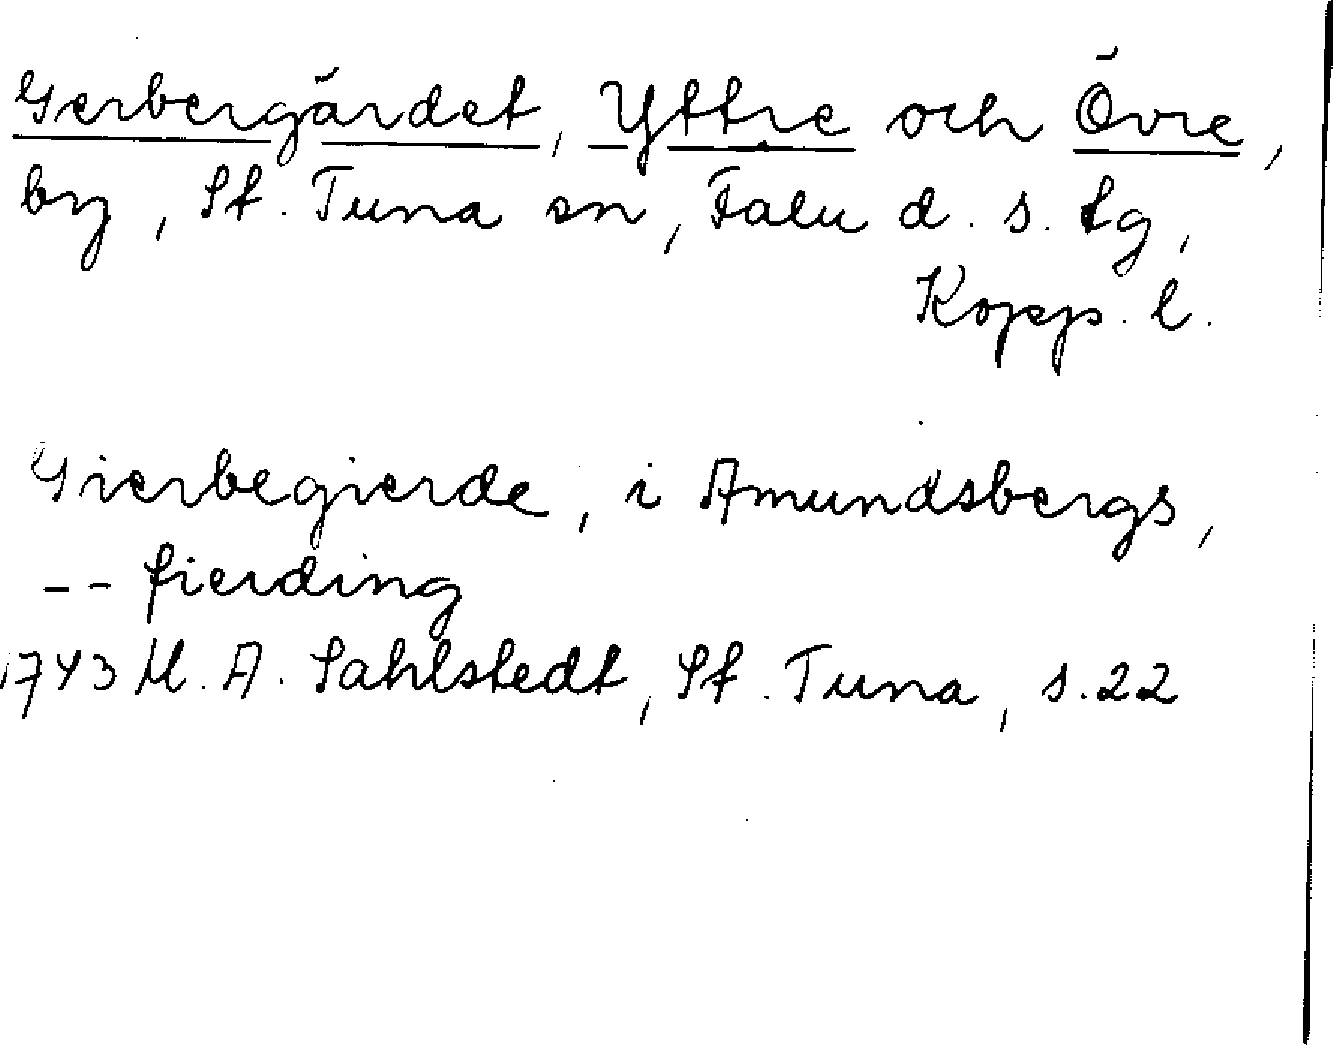 Gerbergärdet, Yttre och Övre,
by, St. Tuna sn, Falu d. s. tg,
Kopp. l.
Gierbegierde, i Amundsbergs,
-- fierding
1743 M. A. Sahlstedt, St. Tuna, s. 22